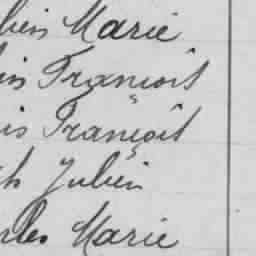 lien Marie
in François
is François
h Julien
rles Marie